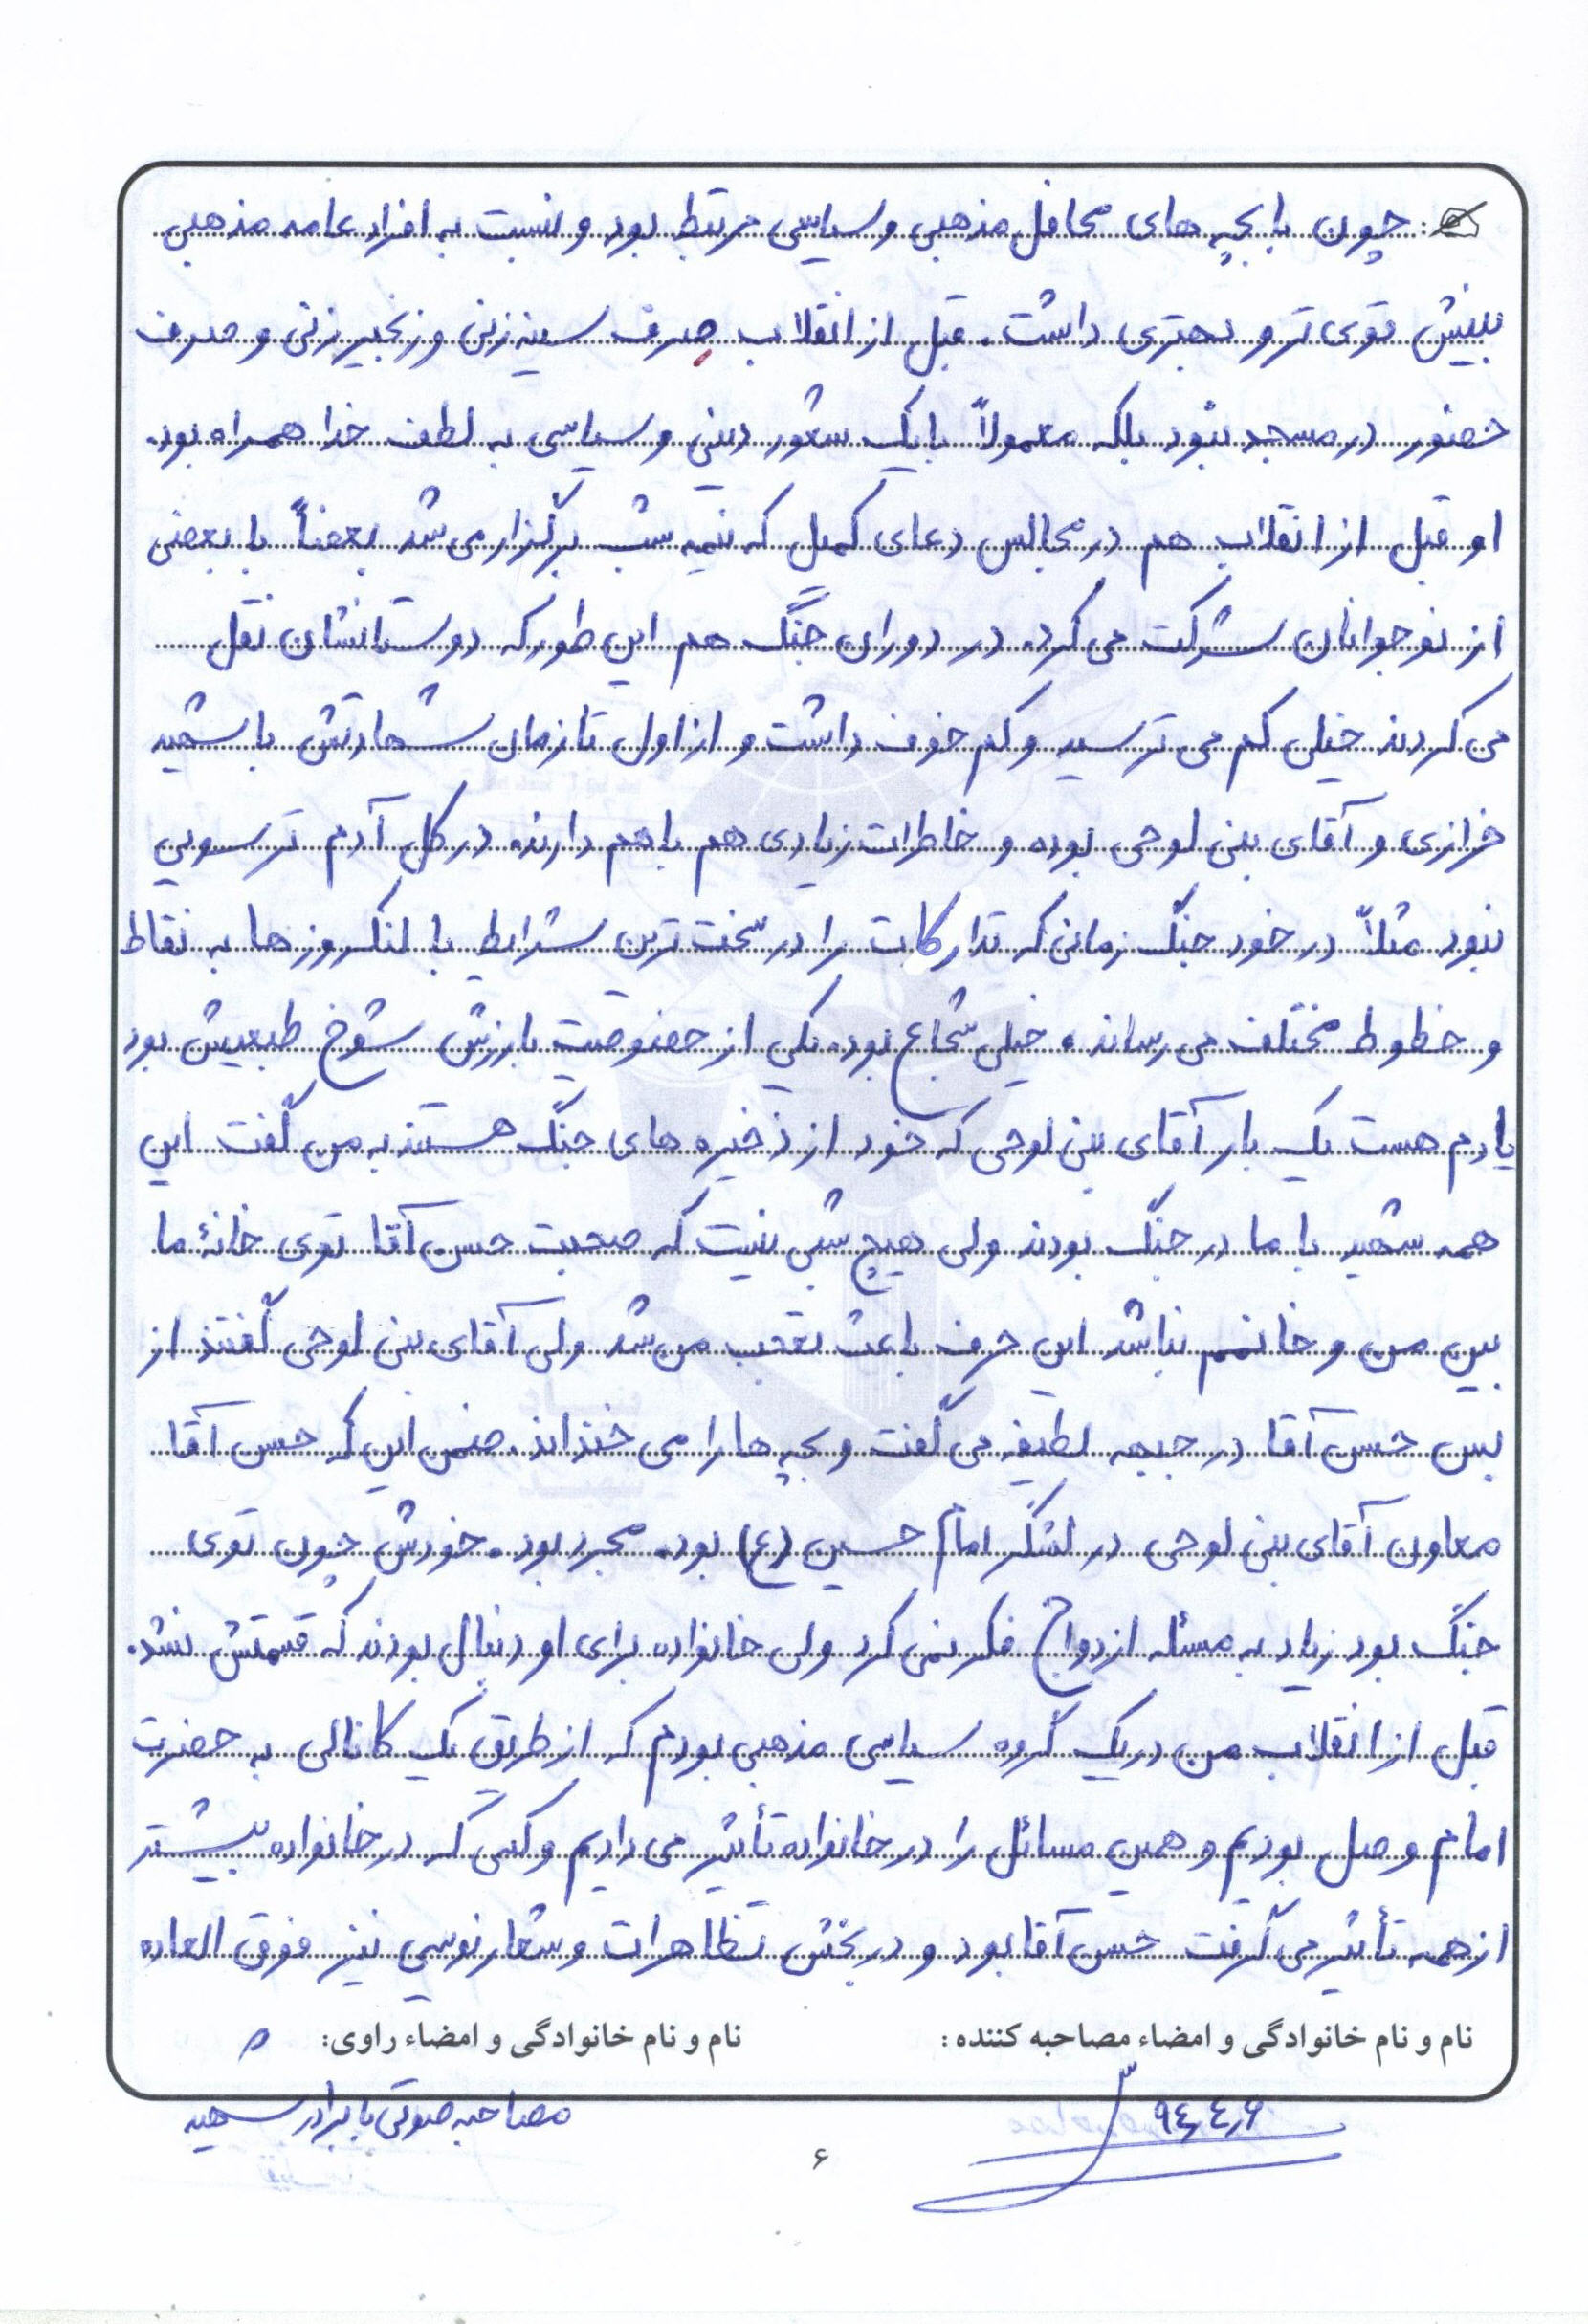 چون با بچه های محافل مذهبی و سیاسی مرتبط بود و نسبت به افراد عامه مذهبی
بینش قوی تر و بهتری داشت. قبل از انقلاب صرف سینه زنی و زنجیر زنی و صرف
حضور در مسجد نبود بلکه معمولاً با یک شعور دینی و سیاسی به لطف خدا همراه بود.
او قبل از انقلاب هم در مجالس دعای کمیل که نیمه شب برگزار می شد بعضاً با بعضی
از نوجوانان شرکت می کرد. در دوران جنگ هم این طور که دوستانشان نقل
می کردند خیلی کم می ترسید و کم خوف داشت و از اول تا زمان شهادتش با شهید
خرازی و آقای بنی لوحی بوده و خاطرات زیادی هم با هم دارند. در کل آدم ترسویی
نبود مثلاً در خود جنگ زمانی که تدارکات را در سخت ترین شرایط با لنکروز ها به نقاط
و خطوط مختلف می رساند. خیلی شجاع بود. یکی از خصوصیت بارزش شوخ طبعیش بود
یادم هست یک بار آقای بنی لوحی که خود از ذخیره های جنگ هستند به من گفت این
همه شهید با ما در جنگ بودند ولی هیچ شبی نیست که صحبت حسن آقا توی خانهٔ ما
بین من و خانمم نباشد این حرف باعث تعجب من شد ولی آقای بنی لوحی گفتند از
بس حسن آقا در جبهه لطیفه می گفت و بچه ها را می خنداند. ضمن این که حسن آقا
معاون آقای بنی لوحی در لشگر امام حسین (ع) بود. مجرد بود. خودش چون توی
جنگ بود زیاد به مسئله ازدواج فکر نمی کرد ولی خانواده برای او دنبال بودند که قسمتش نشد.
قبل از انقلاب من در یک گروه سیاسی مذهبی بودم که از طریق یک کانالی به حضرت
امام وصل بودیم و همین مسائل را در خانواده تأثیر می دادیم و کسی که در خانواده بیشتر
از همه تأثیر می گرفت حسن آقا بود و در بخش تظاهرات و شعار نویسی نیز فوق العاده
نام و نام خانوادگی و امضاء مصاحبه کننده: نام و نام خانوادگی و امضاء راوی:
۹٤٫٤٫۶ مصاحبه صوتی با برادر شهید
۶